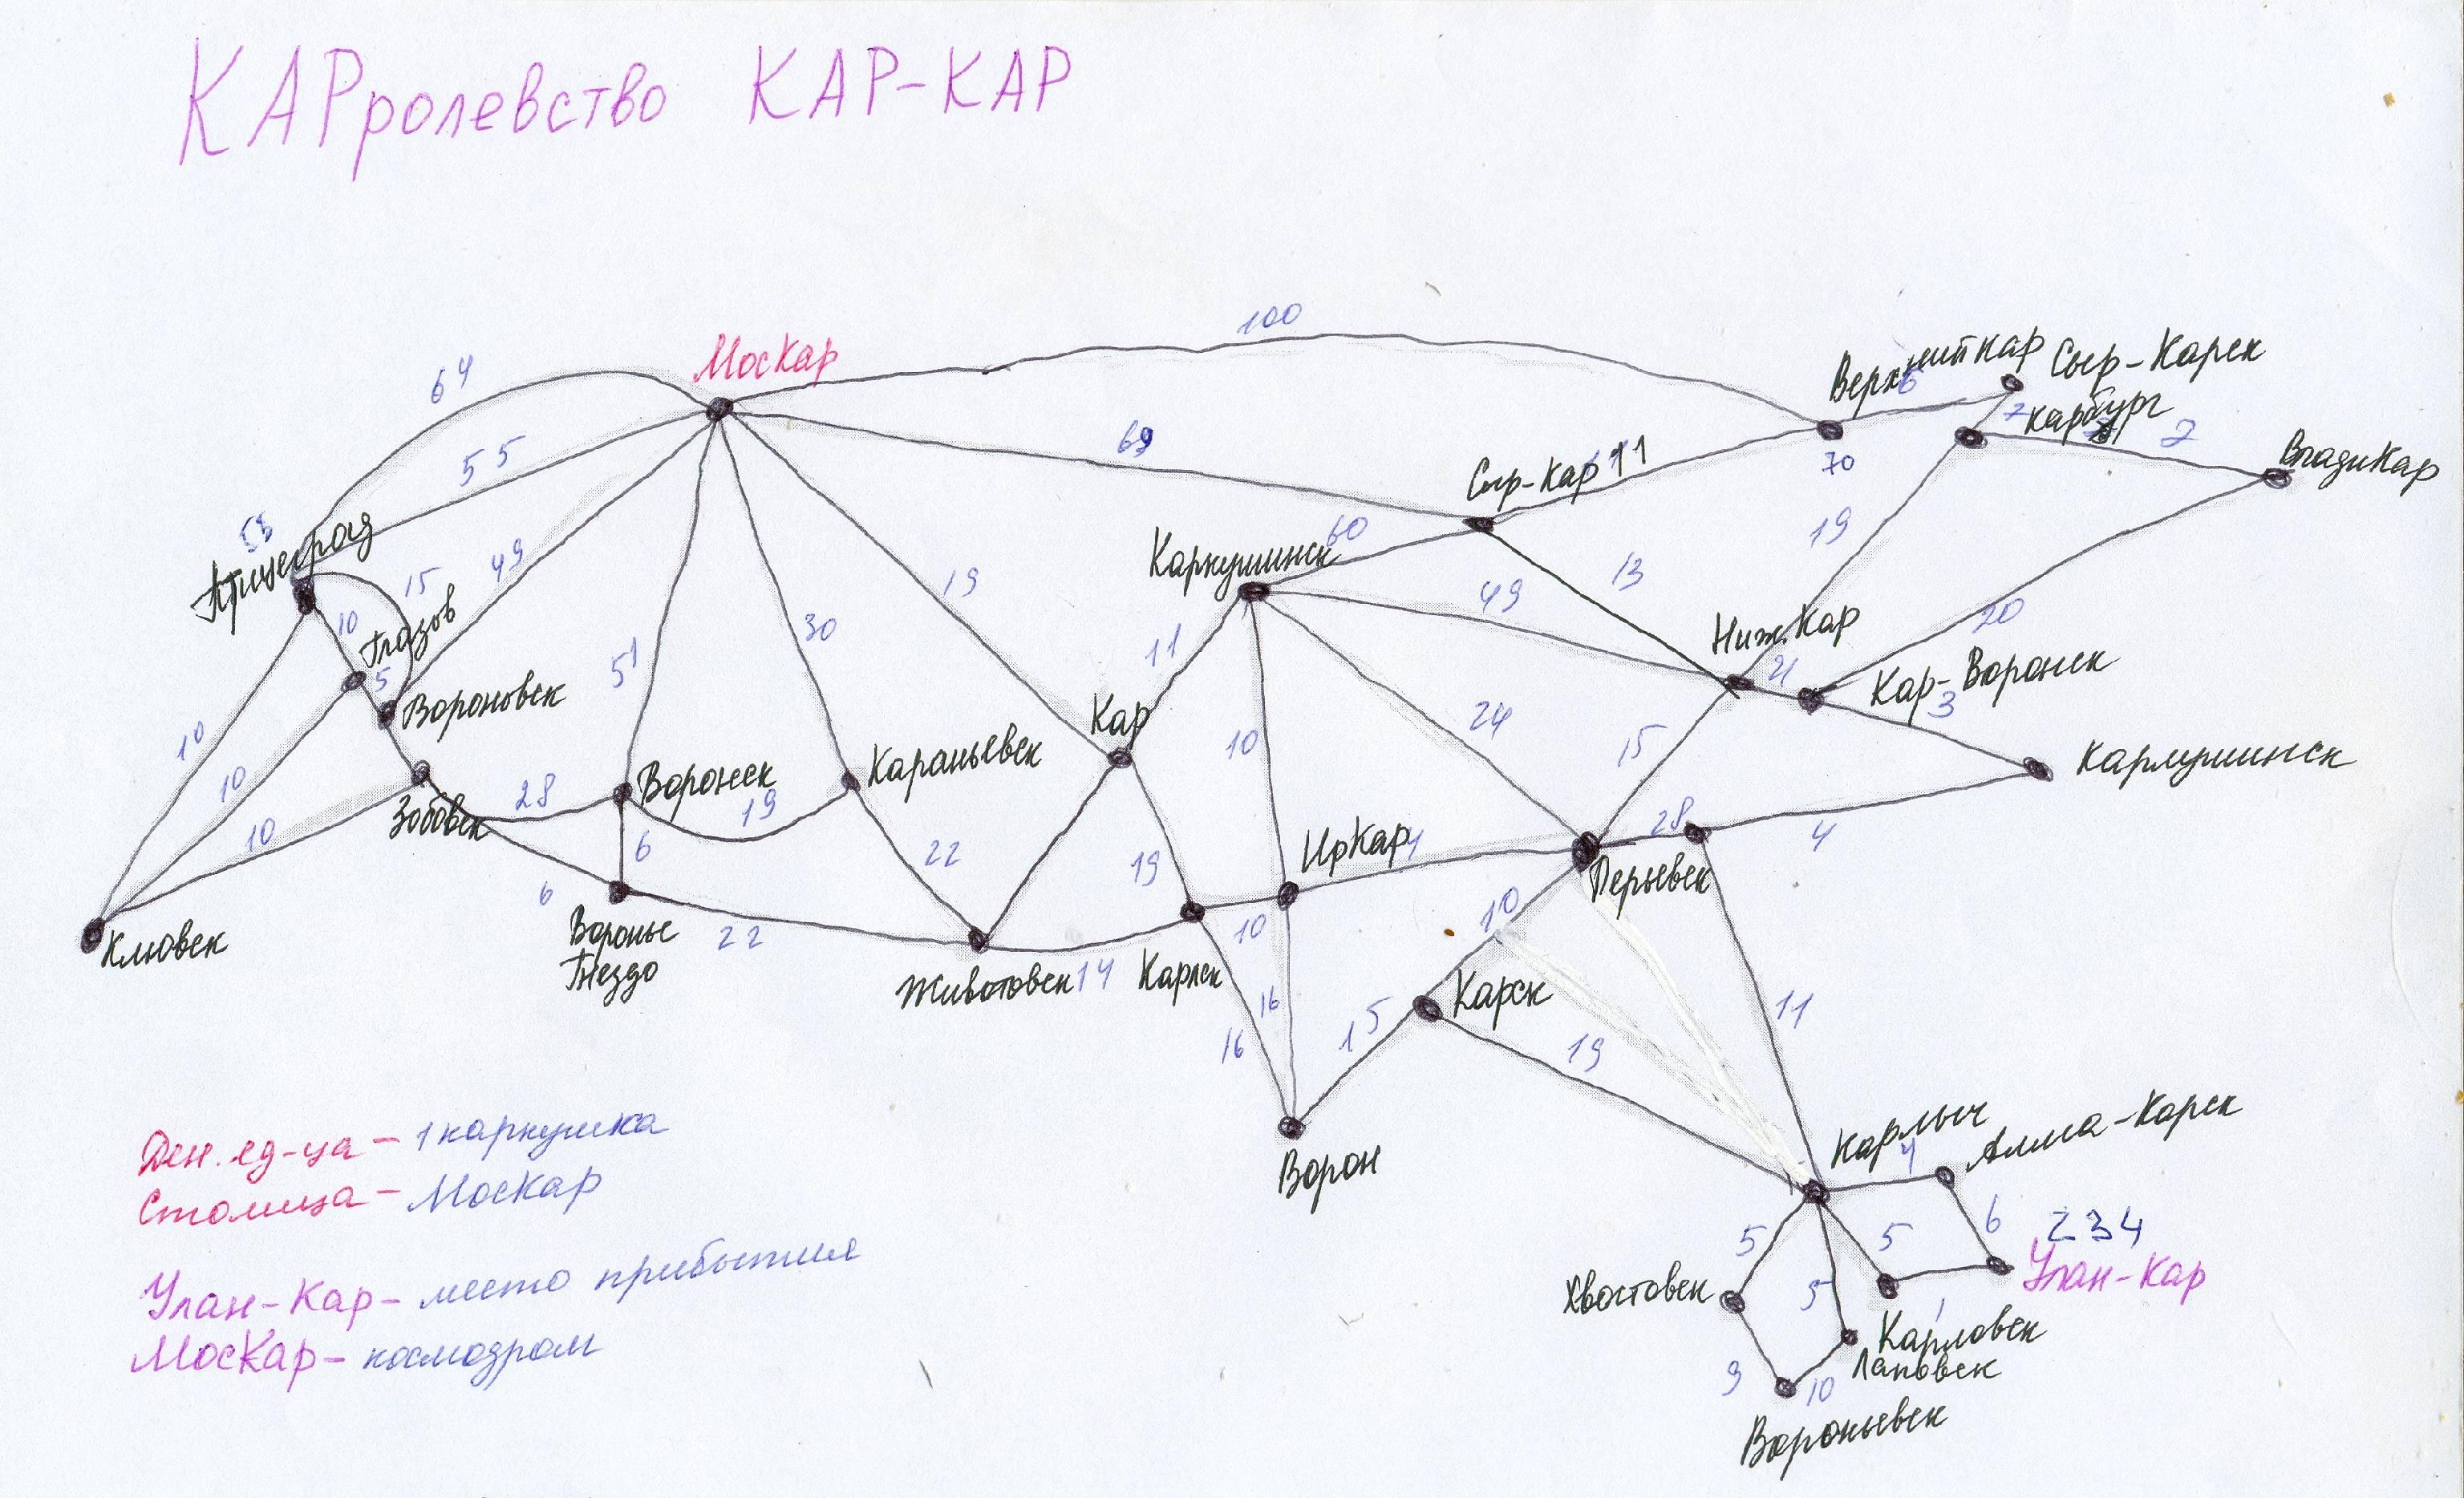 КАРролевство КАР-КАР
100
МосКар
64
55
69
ВерхнийКар
6
Сыр-Карск
7
Карбург
2
ВладиКар
70
Сыр-Кар 11
58
Птицеград
15
49
10
Глазов
5
Вороновск
51
30
19
Каркушинск
60
49
13
19
Ниж.Кар
21
20
Кар-Воронск
3
Карлушинск
11
Кар
10
24
15
10
10
10
Зобовск
28
Воронск
19
Караньевск
6
22
19
ИрКар
4
28
Перьевск
4
Клювск
6
Воронье
Гнездо
22
Животовск
14
Карлск
10
10
16
16
15
Карск
19
11
Ворон
Ден. ед-ца - 1 каркушка
Столица - МосКар
Улан-Кар - место прибытия
МосКар - космодром
Карлыч
4
Алма-Карск
5
5
6
234
Улан-Кар
Хвостовск
5
1
Карловск
Лаповск
9
10
Вороньевск